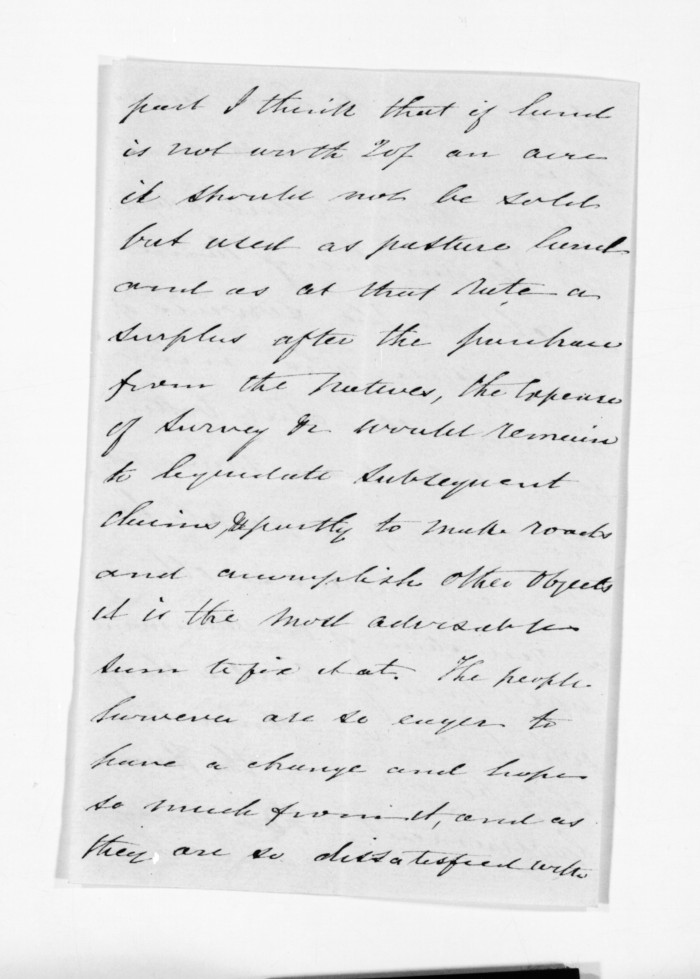 part I think that if land
is not worth 20/ an acre
it should not be sold
but used as pasture land
and as at that rate a
surplus after the purchase
from the Natives, the Expense
of Survey &c would remain
to liquidate subsequent
claims, & partly to make roads
and accomplish other objects
it is the most advisable
sum to fix it at. The people
however are so eager to
have a change and hope
so much from it, and as
they are so dissatisfied with